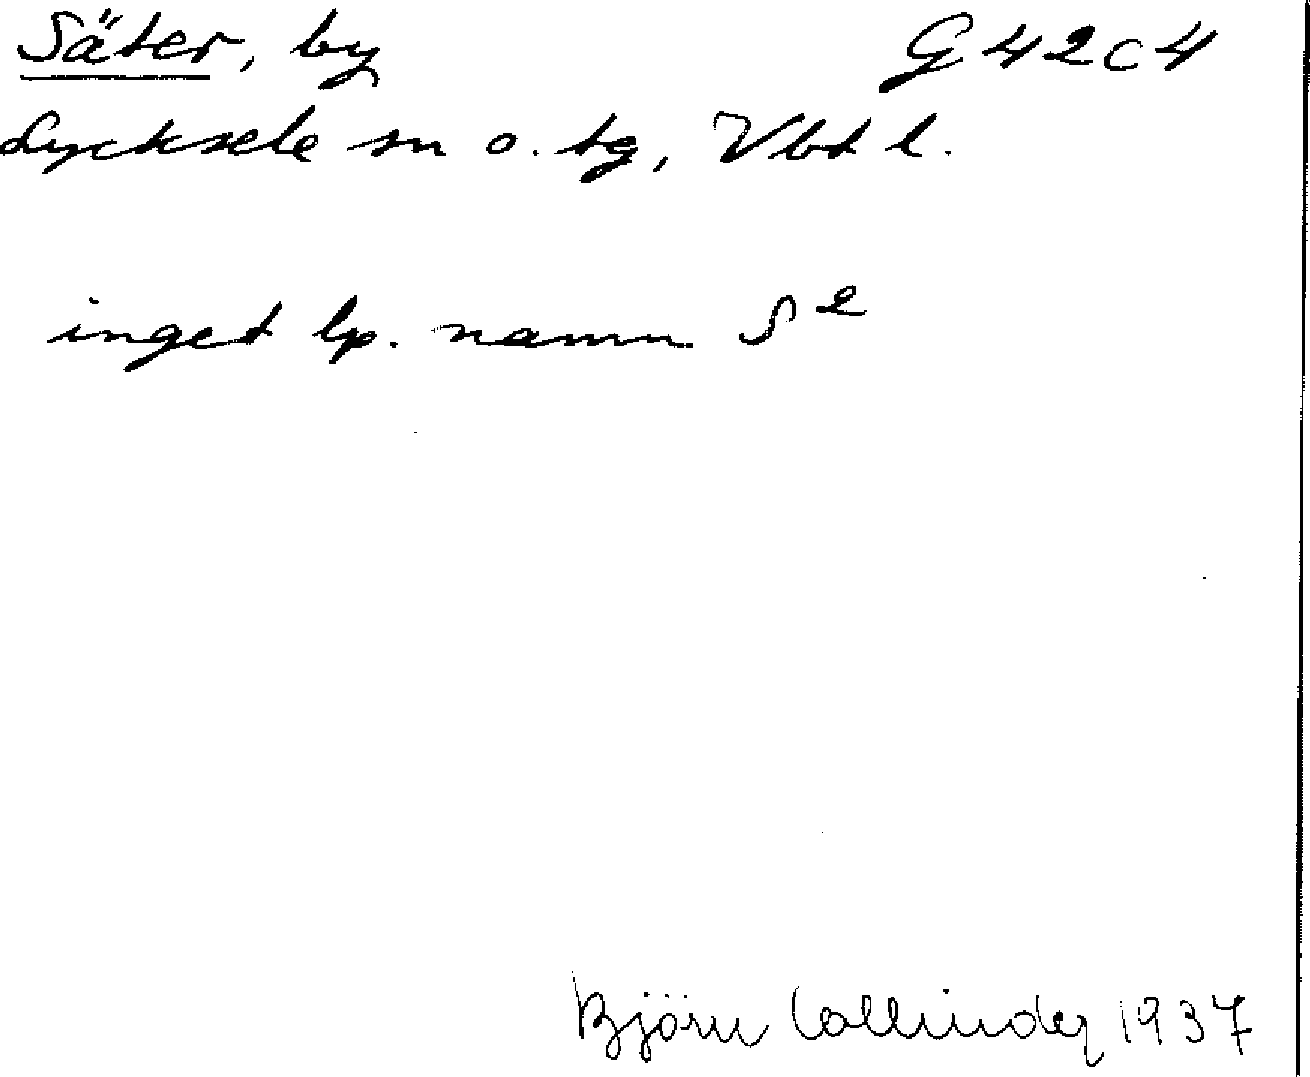 Säter, by G 42 c 4
Lycksele sn o. tg, Vbt l.
inget lp. namn S²
Björn Collinder 1937